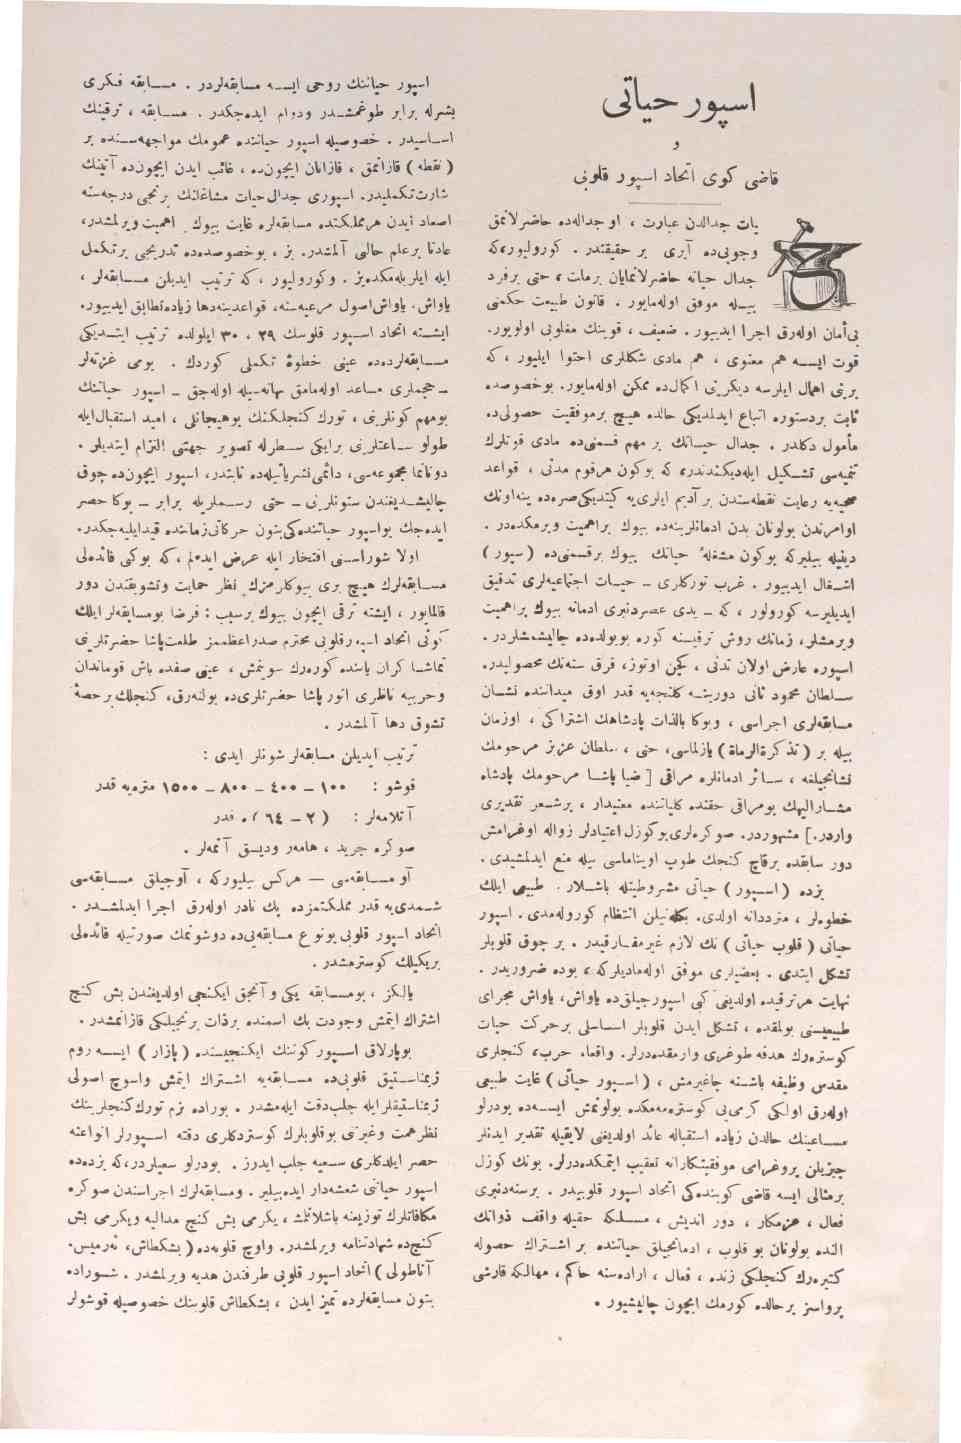 اسپور حیاتی
و
قاضی كوی اتحاد اسپور قلوبی
یات جدالدن عبارت ، او جدالەده حاضرلانمق
وجوبی‌ده آیری بر حقیقتدر . كورولیور،كه
جدال حیاته حاضرلانمایان برملت ، حتی برفرد
بیـله موفق اولەمایور . قانون طبیعت حكمنی
بی‌أمان اولەرق اجرا ایدییور . ضعیف ، قوینك مغلوبی اولویور.
قوت ایســه هم معنوی ، هم مادی شكللری احتوا ایلیور ، كه
برینی اهمال ایلرسه دیگرینی اكمالده ممكن اولەمایور. بوخصوصده
ثابت بردستوره اتباع ایدلمدیكی حالده هیـچ برموفقیت حصولی‌ده
مأمول دكلدر . جدال حیـاتك بر مهم قسمنی‌ده مادی قوتلرك
تنمیه‌سی تشـكیل ایلەدیكـندندر، كه بوكون هرقوم مدنی ، قواعد
صحیه‌یه رعایت نقطه‌سندن بر آدیم ایلری‌یه كیتدیكی‌صره‌ده ینه‌اونك
اوامرندن بولونان بدن ادمانلرینه‌ده بیوك براهمیت ویرمكده‌در .
دینیله بیلیركه بوكون مشغلۀ حیاتك بیوك برقسمنی‌ده (سپور)
اشـغال ایدییور . غرب تورکلری ـ حیـات اجتماعیه‌لری تدقیق
ایدیلیرسه كورولور ، كه ـ یدی عصردنبری ادمانه بیوك براهمیت
ویرمشلر، زمانك روش ترقیسنه كوره بویولده‌ده چالیشمشلردر .
اسپوره عارض اولان تدنی ، كچن اوتوز، قرق سنه‌نك محصولیدر.
سـلطان محمود ثانی دورینـه كلنجه‌یه قدر اوق میداننده نشـان
مسابقه‌لری اجراسی ، وبوكا بالذات پادشاهك اشتراكی ، اوزمان
بیله بر ( تذكرة‌الرماة ) یازلماسی، حتی ، سلطان عزیز مرحومك
نشانجیلغه ، سـائر ادمانلره مراقی [ ضیا پاشـا مرحومك پادشاه
مشـارالیهك بومراقی حقنده كلیاتنده معنیدار ، برشـعر تقدیری
واردر.] مشهوردر. صوكره‌لری بوكوزل اعتیادلر زواله اوغرامش
دور سابقده برقاچ كنجك طوپ اوینماسی بیله منع ایدلمشیدی .
بزده ( اسـپور ) حیاتی مشروطیتله باشـلار . طبیعی ایلك
خطوه‌لر ، مترددانه اولدی. بكله‌نیلن انتظام كورولەمدی. اسپور
حیاتی ( قلوب حیاتی ) نك لازم غیرمفـارقیدر . بر چوق قلوبلر
تشكل ایتدی . بعضیلری موفق اولەمادیلركه ، بوده ضروریدر .
نهایت هرترقیده اولدیغی كبی اسپورجیلق‌ده یاواش، یاواش مجرای
طبیعیسنی بولمقده ، تشكل ایدن قلوبلر اسـاسلی برحركت حیات
كوستره‌رك هدفه طوغری وارمقده‌درلر. واقعا، حرب، كنجلری
مقدس وظیفه باشـنه چاغیرمش ، ( اسـپور حیاتی ) غایت طبیعی
اولەرق اولكی كرمی‌یی كوسترەمەمكده بولونمش ایسـه‌ده بودرلو
مسـاعینك حالدن زیاده استقباله عائد اولدیغنی لایقیله تقدیر ایدنلر
چیزیلن پروغرامی موفقیتكارانه تعقیب ایتمكده‌درلر. بونك كوزل
برمثالی ایسه قاضی كوینده‌كی اتحاد اسپور قلوبیدر . برسنه‌دنبری
فعال ، عزمكار ، دور اندیش ، مســلكه حقیله واقف ذواتك
النده بولونان بو قلوب ، ادمانجیلق حیاتنده بر اشـتراك حصوله
كتیره‌رك كنجلكی زنده ، فعال ، اراده‌سنه حاكم ، مهالكه قارشی
پرواسز برحالده كورمك ایچون چالیشیور .
اسپور حیاتنك روحی ایسـه مسـابقه‌لردر . مسـابقه فـكری
بشرله برابر طوغمشـدر ودوام ایده‌جكدر . مسـابقه ، ترقینك
اسـاسیدر . خصوصیله اسپور حیاتنده عمومك مواجهه‌سـنده بر
( نقطه ) قازانمق ، قازانان ایچون‌ده ، غائب ایدن ایچون‌ده آتینك
شارت‌تكملیدر. اسپوری جدال‌حیات مشاغلنك برنجی درجه‌سنه
اصعاد ایدن هرمملكتده مسابقه‌لره غایت بیوك اهمیت ویرلمشدر،
عادتا برعلم حالنی آلمشدر. بز ، بوخصوصده‌ده تدریجی برتكمل
ایله ایلریله‌مكده‌یز . وكورولیور ، كه ترتیب ایدیلن مسـابقه‌لر ،
یاواش، یاواش‌اصول مرعیه‌سنه، قواعدینه‌دها زیاده‌تطابق ایدییور.
ایشـته اتحاد اسـپور قلوبنك ٢٩ ، ٣٠ ایلولده ترتیب ایتـدیكی
مسـابقه‌لرده‌ده عینی خطوۀ تكملی كوردك . یومی غزته‌لر
ـ حجملری مسـاعد اولەمامق بهانه‌سیله اولەجق ـ اسپور حیاتنك
بومهم كونلرینی ، تورك كنجلكنك بوهیجانلی ، امید استقبال‌ایله
طولو ـ ساعتلرینی برایكی سـطرله تصویر جهتنی التزام ایتدیلر .
دونانما مجموعه‌سی، دائمی‌نشریاتیله‌ده ثابتدر، اسپور ایچون‌ده چوق
چالیشـدیغندن ستونلرنی ـ حتی رسـملریله برابر ـ بوكا حصر
ایده‌جك بواسپور حیاتنده‌كی‌بتون حركاتی‌زماننده قیدایلیه‌جكدر.
اولا شوراسـنی افتخار ایله عرض ایده‌لم ، كه بوكبی فائده‌لی
مسـابقه‌لرك هیـچ بری بیوكلرمزك نظر حمایت وتشویقندن دور
قالمایور ، ایشته ترقی ایچون بیوك برسبب : فرضا بومسـابقه‌لر ایلك
كونی اتحاد اسپورقلوبی محترم صدراعظممز طلعت‌پاشا حضرتلرینی
تماشـا كران یاننده كوره‌رك سوینمش ، عینی صفده باش قوماندان
وحربیه ناظری انور پاشا حضرتلری‌ده بولنه‌رق، كنجلك برحصۀ
تشوق دها آلمشدر .
ترتیب ایدیلن مسـابقه‌لر شونلر ایدی :
قوشو : ١٠٠ ـ ٤٠٠ ـ ٨٠٠ ـ ١٥٠٠ متره‌یه قدر
آتلامه‌لر : ( ٢ ـ ٦٤ ) ه قدر
صوكره جرید ، هامەر ودیسق آتمه‌لر .
آو مسـابقه‌سی — هركس بیلیوركه ، آوجیلق مسـابقه‌سی
شـمدی‌یه قدر مملكتمزده پك نادر اولەرق اجرا ایدلمشـدر .
اتحاد اسپور قلوبی بونوع مسابقه‌یی‌ده دوشونمك صورتیله فائده‌لی
بریكیلك كوسترمشدر .
یالكز ، بومسـابقه یكی وآنجق ایكنجی اولدیغندن بش كنج
اشتراك ایتمش وجودت بك اسمنده برذات برنجیلكی قازانمشدر .
بوپارلاق اسـپور كوننك ایكنجیسنده ( پازار ) ایسـه روم
ژیمناسـتیق قلوبی‌ده مسـابقه‌یه اشـتراك ایتمش واسوچ اصولی
ژیمناستیقلر ایله جلب‌دقت ایلەمشدر . بوراده بزم تورك‌كنجلرینك
نظر همت وغیرتنی بوقلوبلرك كوستردكلری دقته اسـپورلر انواعنه
حصر ایلدكلری سـعیه جلب ایدرز . بودرلو سعیلردر،كه بزده‌ده
اسپور حیاتی شعشه‌دار ایده‌بیلیر . ومسابقه‌لرك اجراسندن صوكره
مكافاتلرك توزیعنه باشلانلمش ، یكرمی بش كنج مدالیه ویكرمی بش
كنجده شهادتنامه ویرلمشدر. واوچ قلوبه‌ده ( بشكطاش، ئه‌رمیس،
آناطولی ) اتحاد اسپور قلوبی طرفندن هدیه ویرلمشدر . شـوراده
بتون مسابقه‌لرده تمیز ایدن ، بشكطاش قلوبنك خصوصیله قوشولر